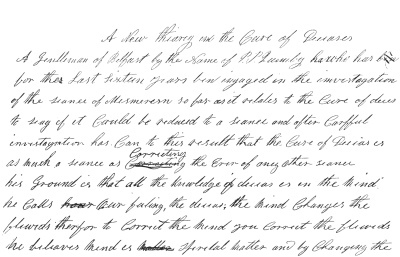 A New Thiorey on the Cure of Deceases
A Gentleman of Belfast by the Name of P P Quimby has who has been
for the Last sixteen years ben ingaged in the investagation
of the sianec of Mesmerism so far as it relates to the Cure of decies
to seay if it Could be reduced to a sianec and after Carfful
investagation has Can to this result that the Cure of Decias es
Correcting
as much a seance as the Eror of oney other seance
his Ground is that all the knowledge of decias es in the mind
he Calls Our feiling, the deceas, the mind Changes the
fluwids therfor to Correct the mind you Correct the fluwids
he beleaves mind is Spiretal matter and by Changing the